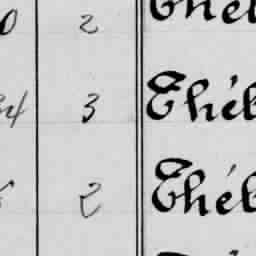 0 2 Théb
34 3 Théb
2 Théb